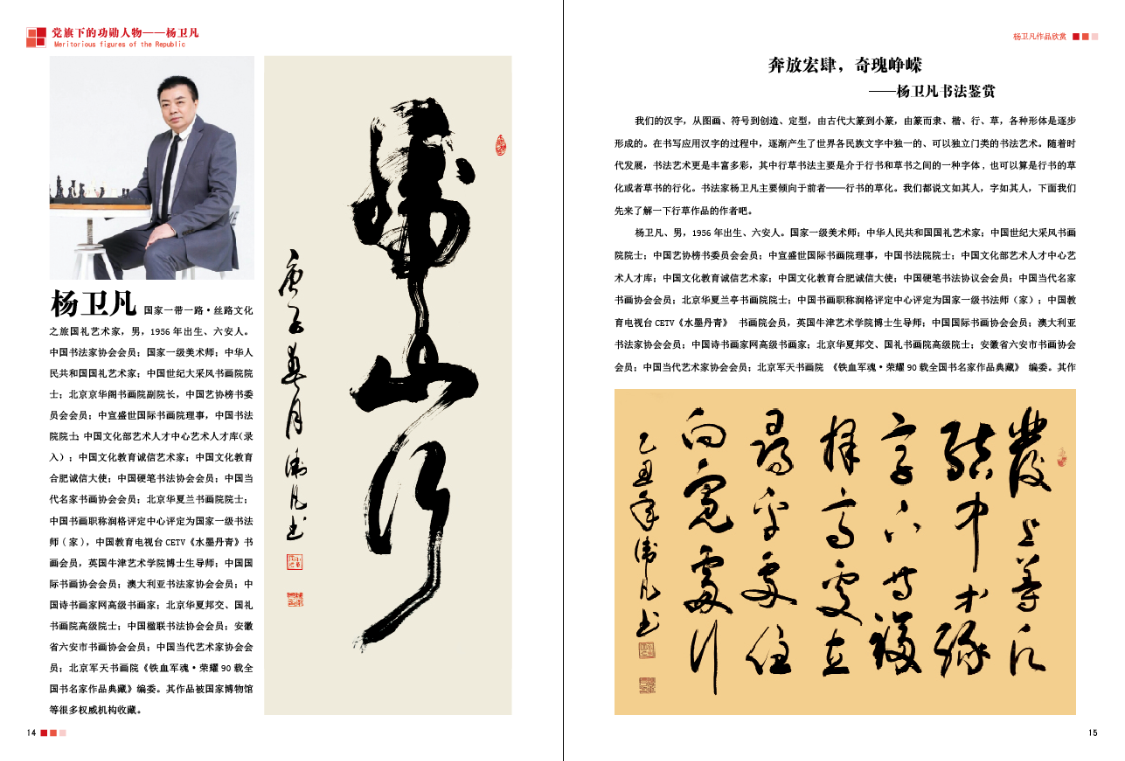 党旗下的功勋人物——杨卫凡
Meritorious figures of the Republic
杨卫凡 国家一带一路·丝路文化
之旅国礼艺术家，男，1956 年出生、六安人。
中国书法家协会会员；国家一级美术师；中华人
民共和国国礼艺术家；中国世纪大采风书画院院
士；北京京华阁书画院副院长，中国艺协榜书委
员会会员；中宣盛世国际书画院理事，中国书法
院院士；中国文化部艺术人才中心艺术人才库（录
入）；中国文化教育诚信艺术家；中国文化教育
合肥诚信大使；中国硬笔书法协会会员；中国当
代名家书画协会会员；北京华夏兰书画院院士；
中国书画职称润格评定中心评定为国家一级书法
师（家），中国教育电视台 CETV《水墨丹青》书
画会员，英国牛津艺术学院博士生导师；中国国
际书画协会会员；澳大利亚书法家协会会员；中
国诗书画家网高级书画家；北京华夏邦交、国礼
书画院高级院士；中国楹联书法协会会员；安徽
省六安市书画协会会员；中国当代艺术家协会会
员；北京军天书画院《铁血军魂·荣耀 90 载全
国书名家作品典藏》编委。其作品被国家博物馆
等很多权威机构收藏。
虎山行
庚子春月衛凡書
14
杨卫凡作品欣赏
奔放宏肆，奇瑰峥嵘
——杨卫凡书法鉴赏
我们的汉字，从图画、符号到创造、定型，由古代大篆到小篆，由篆而隶、楷、行、草，各种形体是逐步
形成的。在书写应用汉字的过程中，逐渐产生了世界各民族文字中独一的、可以独立门类的书法艺术。随着时
代发展，书法艺术更是丰富多彩，其中行草书法主要是介于行书和草书之间的一种字体，也可以算是行书的草
化或者草书的行化。书法家杨卫凡主要倾向于前者——行书的草化。我们都说文如其人，字如其人，下面我们
先来了解一下行草作品的作者吧。
杨卫凡、男，1956 年出生、六安人。国家一级美术师；中华人民共和国国礼艺术家；中国世纪大采风书画
院院士；中国艺协榜书委员会会员；中宣盛世国际书画院理事，中国书法院院士；中国文化部艺术人才中心艺
术人才库；中国文化教育诚信艺术家；中国文化教育合肥诚信大使；中国硬笔书法协议会会员；中国当代名家
书画协会会员；北京华夏兰亭书画院院士；中国书画职称润格评定中心评定为国家一级书法师（家）；中国教
育电视台 CETV《水墨丹青》 书画院会员，英国牛津艺术学院博士生导师；中国国际书画协会会员；澳大利亚
书法家协会会员；中国诗书画家网高级书画家；北京华夏邦交、国礼书画院高级院士；安徽省六安市书画协会
会员；中国当代艺术家协会会员；北京军天书画院 《铁血军魂·荣耀 90 载全国书名家作品典藏》 编委。其作
發上等愿
結中等緣
享下等福
擇高處立
尋平處住
向寬處行
乙丑年衛凡書
15